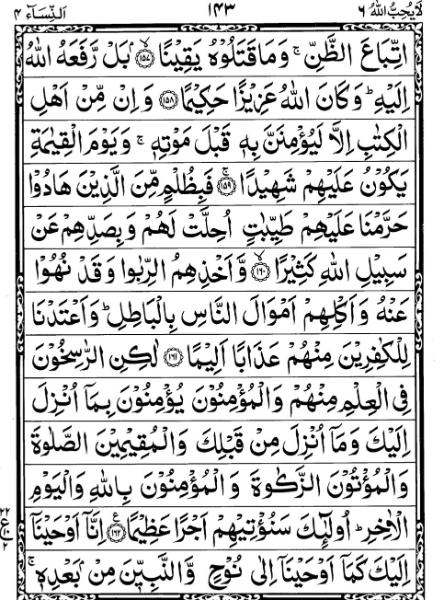 لَا يُحِبُّ اللّٰهُ ٦ ١٤٣ اَلنِّسَآء ٤
اتِّبَاعَ الظَّنِّ ۚ وَمَا قَتَلُوْهُ يَقِيْنًا ۙ‏﴿۱۵۷﴾ بَلْ رَّفَعَهُ اللّٰهُ
اِلَيْهِ ؕ وَكَانَ اللّٰهُ عَزِيْزًا حَكِيْمًا ‏﴿۱۵۸﴾ وَاِنْ مِّنْ اَهْلِ
الْكِتٰبِ اِلَّا لَيُؤْمِنَنَّ بِهٖ قَبْلَ مَوْتِهٖ ۚ وَيَوْمَ الْقِيٰمَةِ
يَكُوْنُ عَلَيْهِمْ شَهِيْدًا ۚ‏﴿۱۵۹﴾ فَبِظُلْمٍ مِّنَ الَّذِيْنَ هَادُوْا
حَرَّمْنَا عَلَيْهِمْ طَيِّبٰتٍ اُحِلَّتْ لَهُمْ وَبِصَدِّهِمْ عَنْ
سَبِيْلِ اللّٰهِ كَثِيْرًا ۙ‏﴿۱۶۰﴾ وَّاَخْذِهِمُ الرِّبٰوا وَقَدْ نُهُوْا
عَنْهُ وَاَكْلِهِمْ اَمْوَالَ النَّاسِ بِالْبَاطِلِ ؕ وَاَعْتَدْنَا
لِلْكٰفِرِيْنَ مِنْهُمْ عَذَابًا اَلِيْمًا ‏﴿۱۶۱﴾ لٰكِنِ الرّٰسِخُوْنَ
فِى الْعِلْمِ مِنْهُمْ وَالْمُؤْمِنُوْنَ يُؤْمِنُوْنَ بِمَاۤ اُنْزِلَ
اِلَيْكَ وَمَاۤ اُنْزِلَ مِنْ قَبْلِكَ وَالْمُقِيْمِيْنَ الصَّلٰوةَ
وَالْمُؤْتُوْنَ الزَّكٰوةَ وَالْمُؤْمِنُوْنَ بِاللّٰهِ وَالْيَوْمِ
الْاٰخِرِ ؕ اُولٰٓئِكَ سَنُؤْتِيْهِمْ اَجْرًا عَظِيْمًا ‏﴿۱۶۲﴾ ع اِنَّاۤ اَوْحَيْنَاۤ
اِلَيْكَ كَمَاۤ اَوْحَيْنَاۤ اِلٰى نُوْحٍ وَّالنَّبِيّٖنَ مِنْۢ بَعْدِهٖ ۚ
٢٢
ع
٢